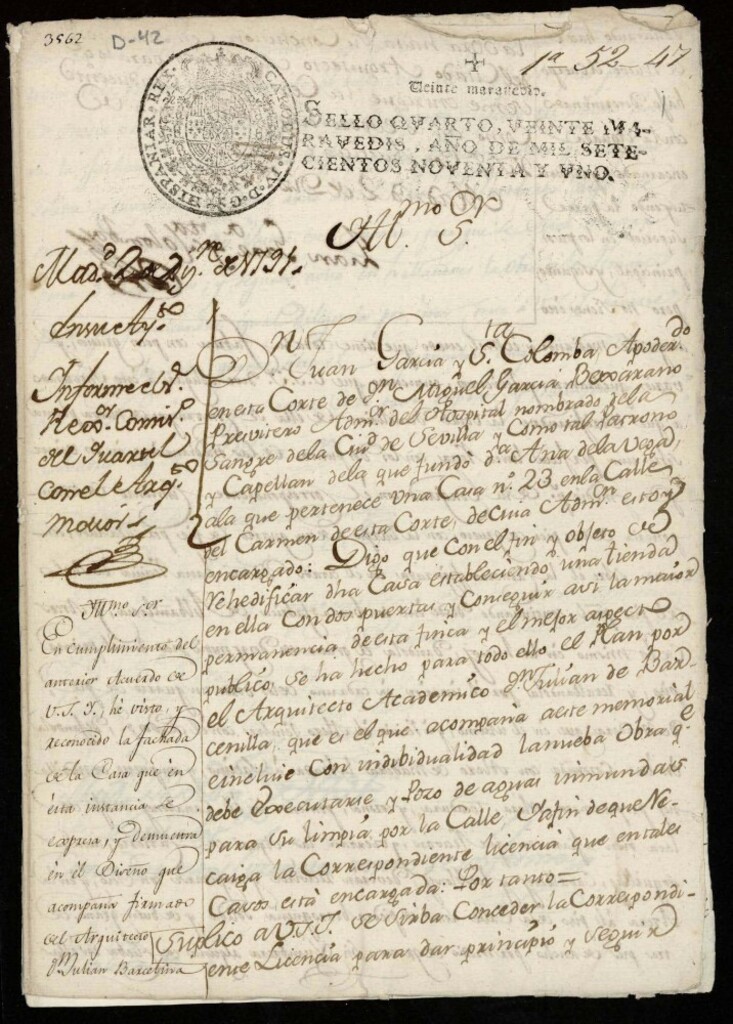 3562
D-42
1ª 52-47
CAROLUS IV D. G. HISPANIAR. REX.
Veinte maravedis.
SELLO QVARTO, VEINTE MA-
RAVEDIS, AÑO DE MIL SETE-
CIENTOS NOVENTA Y VNO.
Yll.mo S.or
Mad.d 2 de 1791.
En su Ay.to
Informe el S.r
Reg.or Comis.o
del Quartel
con el Arq.to
mayor
Yll.mo S.or
En cumplimiento del
anterior Acuerdo de
V.S.Y., he visto, y
reconocido la fachada
de la Casa que en
esta instancia se
expresa, y demuestra
en el Diseño que
acompaña firmado
del Arquitecto
D.n Julian Barcenilla
D.n Juan Garcia y S.ta Colomba Apoder.do
en esta Corte de D.n Miguel Garcia Bexarano
Presvitero Adm.or del Hospital nombrado de la
Sangre de la Ciu.d de Sevilla y Como tal Patrono
y Capellan de la que fundó d.a Ana de la Vega,
ala que pertenece una Casa n.o 23 en la Calle
del Carmen de esta Corte, de cuia Adm.on estoy
encargado: Digo que con el fin y objeto de
Rehedificar dha Casa estableciendo una tienda
en ella con dos puertas y Conseguir asi la maior
permanencia de esta finca y el mejor aspecto
publico, se ha hecho para todo ello el Plan por
el Arquitecto Academico D.n Julian de Bar-
cenilla, que es el que acompaña a este memorial
e incluie con indibidualidad la nueba Obra q.e
debe executarse y Pozo de aguas inmundas
para su limpia por la Calle. Y a fin de que Re-
caiga la Correspondiente licencia que en tales
Casos está encargada: Por tanto=
Suplico a V.S.Y. se sirba Conceder la Correspondi-
ente Licencia para dar principio y seguir